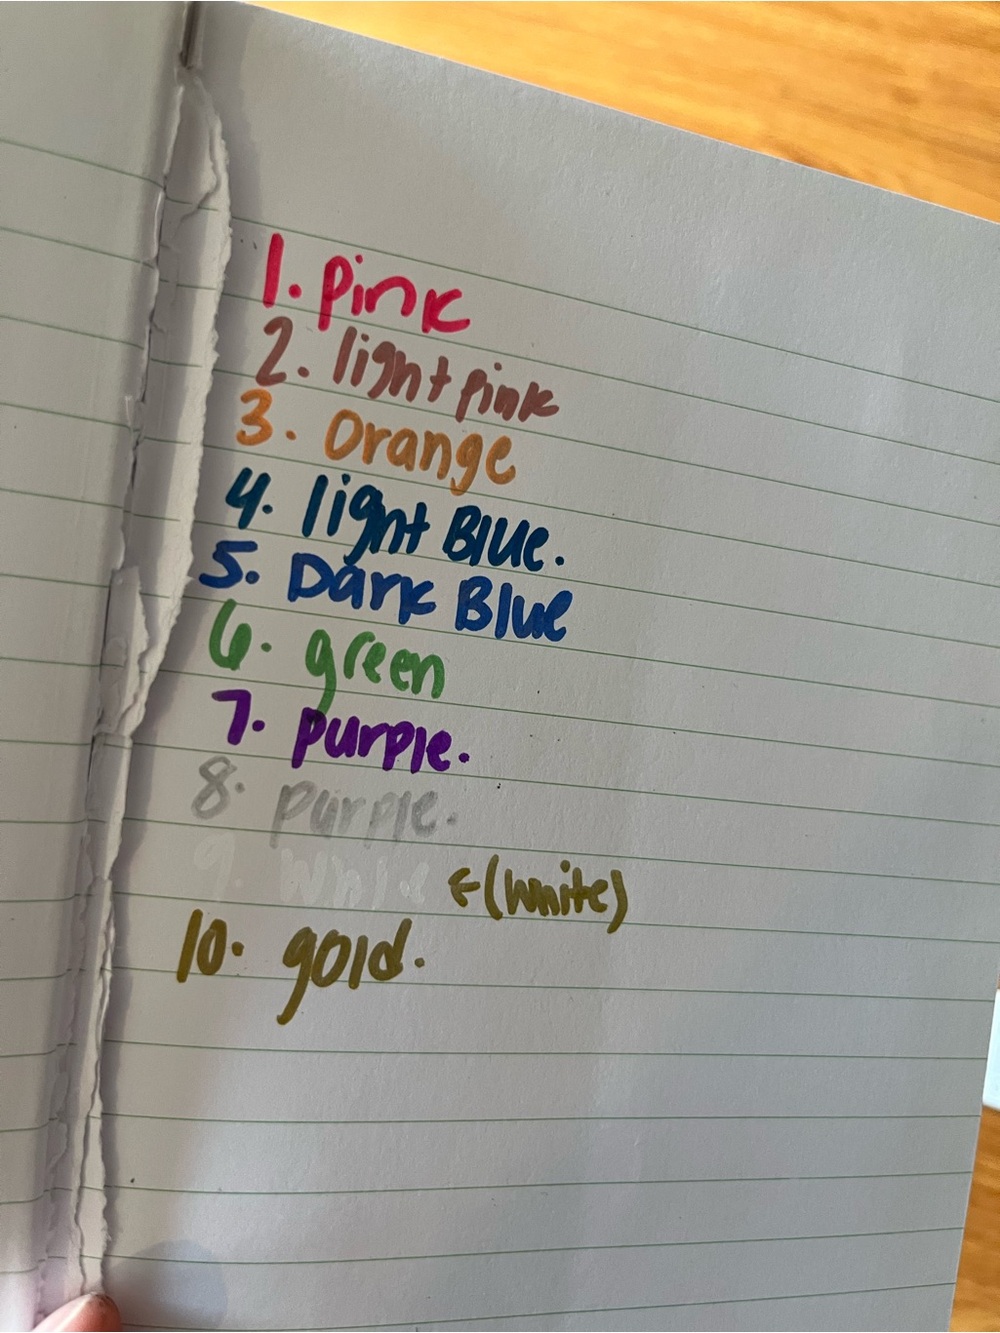 1. pink
2. light pink
3. Orange
4. light Blue.
5. Dark Blue
6. green
7. purple.
8. purple.
9. white ←(white)
10. gold.